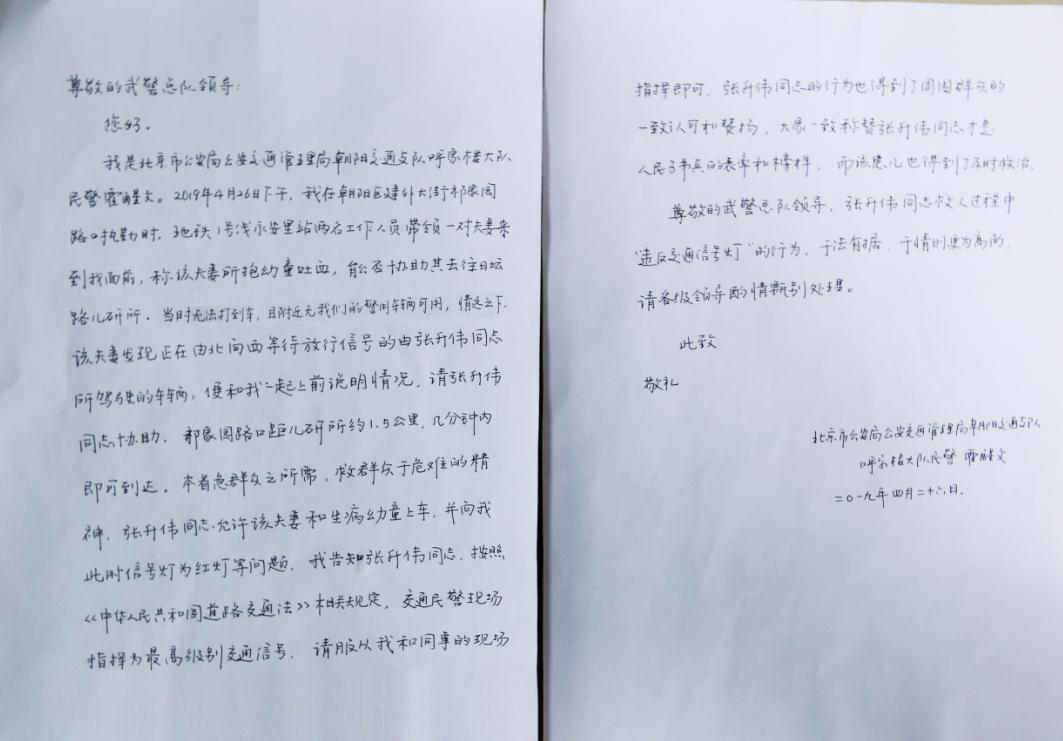 尊敬的武警总队领导：
您好。
我是北京市公安局公安交通管理局朝阳交通支队呼家楼大队
民警霍醒文。2019年4月26日下午，我在朝阳区建外大街祁家园
路口执勤时，地铁1号线永安里站两名工作人员带领一对夫妻来
到我面前，称该夫妻所抱幼童吐血，能否协助其去往日坛
路儿研所。当时无法打到车，且附近无我们的警用车辆可用，情急之下，
该夫妻发现正在由北向西等待放行信号的由张升伟同志
所驾驶的车辆，便和我一起上前说明情况，请张升伟
同志协助。祁家园路口距儿研所约1.5公里，几分钟内
即可到达。本着急群众之所需，救群众于危难的精
神，张升伟同志允许该夫妻和生病幼童上车，并向我
此时信号灯为红灯等问题，我告知张升伟同志，按照
《中华人民共和国道路交通法》相关规定，交通民警现场
指挥为最高级别交通信号，请服从我和同事的现场
指挥即可。张升伟同志的行为也得到了周围群众的
一致认可和赞扬，大家一致称赞张升伟同志才是
人民子弟兵的表率和榜样，而该患儿也得到了及时救治。
尊敬的武警总队领导，张升伟同志救人过程中
“违反交通信号灯”的行为，于法有据，于情则更为高尚，
请各级领导酌情甄别处理。
此致
敬礼
北京市公安局公安交通管理局朝阳交通支队
呼家楼大队民警 霍醒文
二〇一九年四月二十六日.